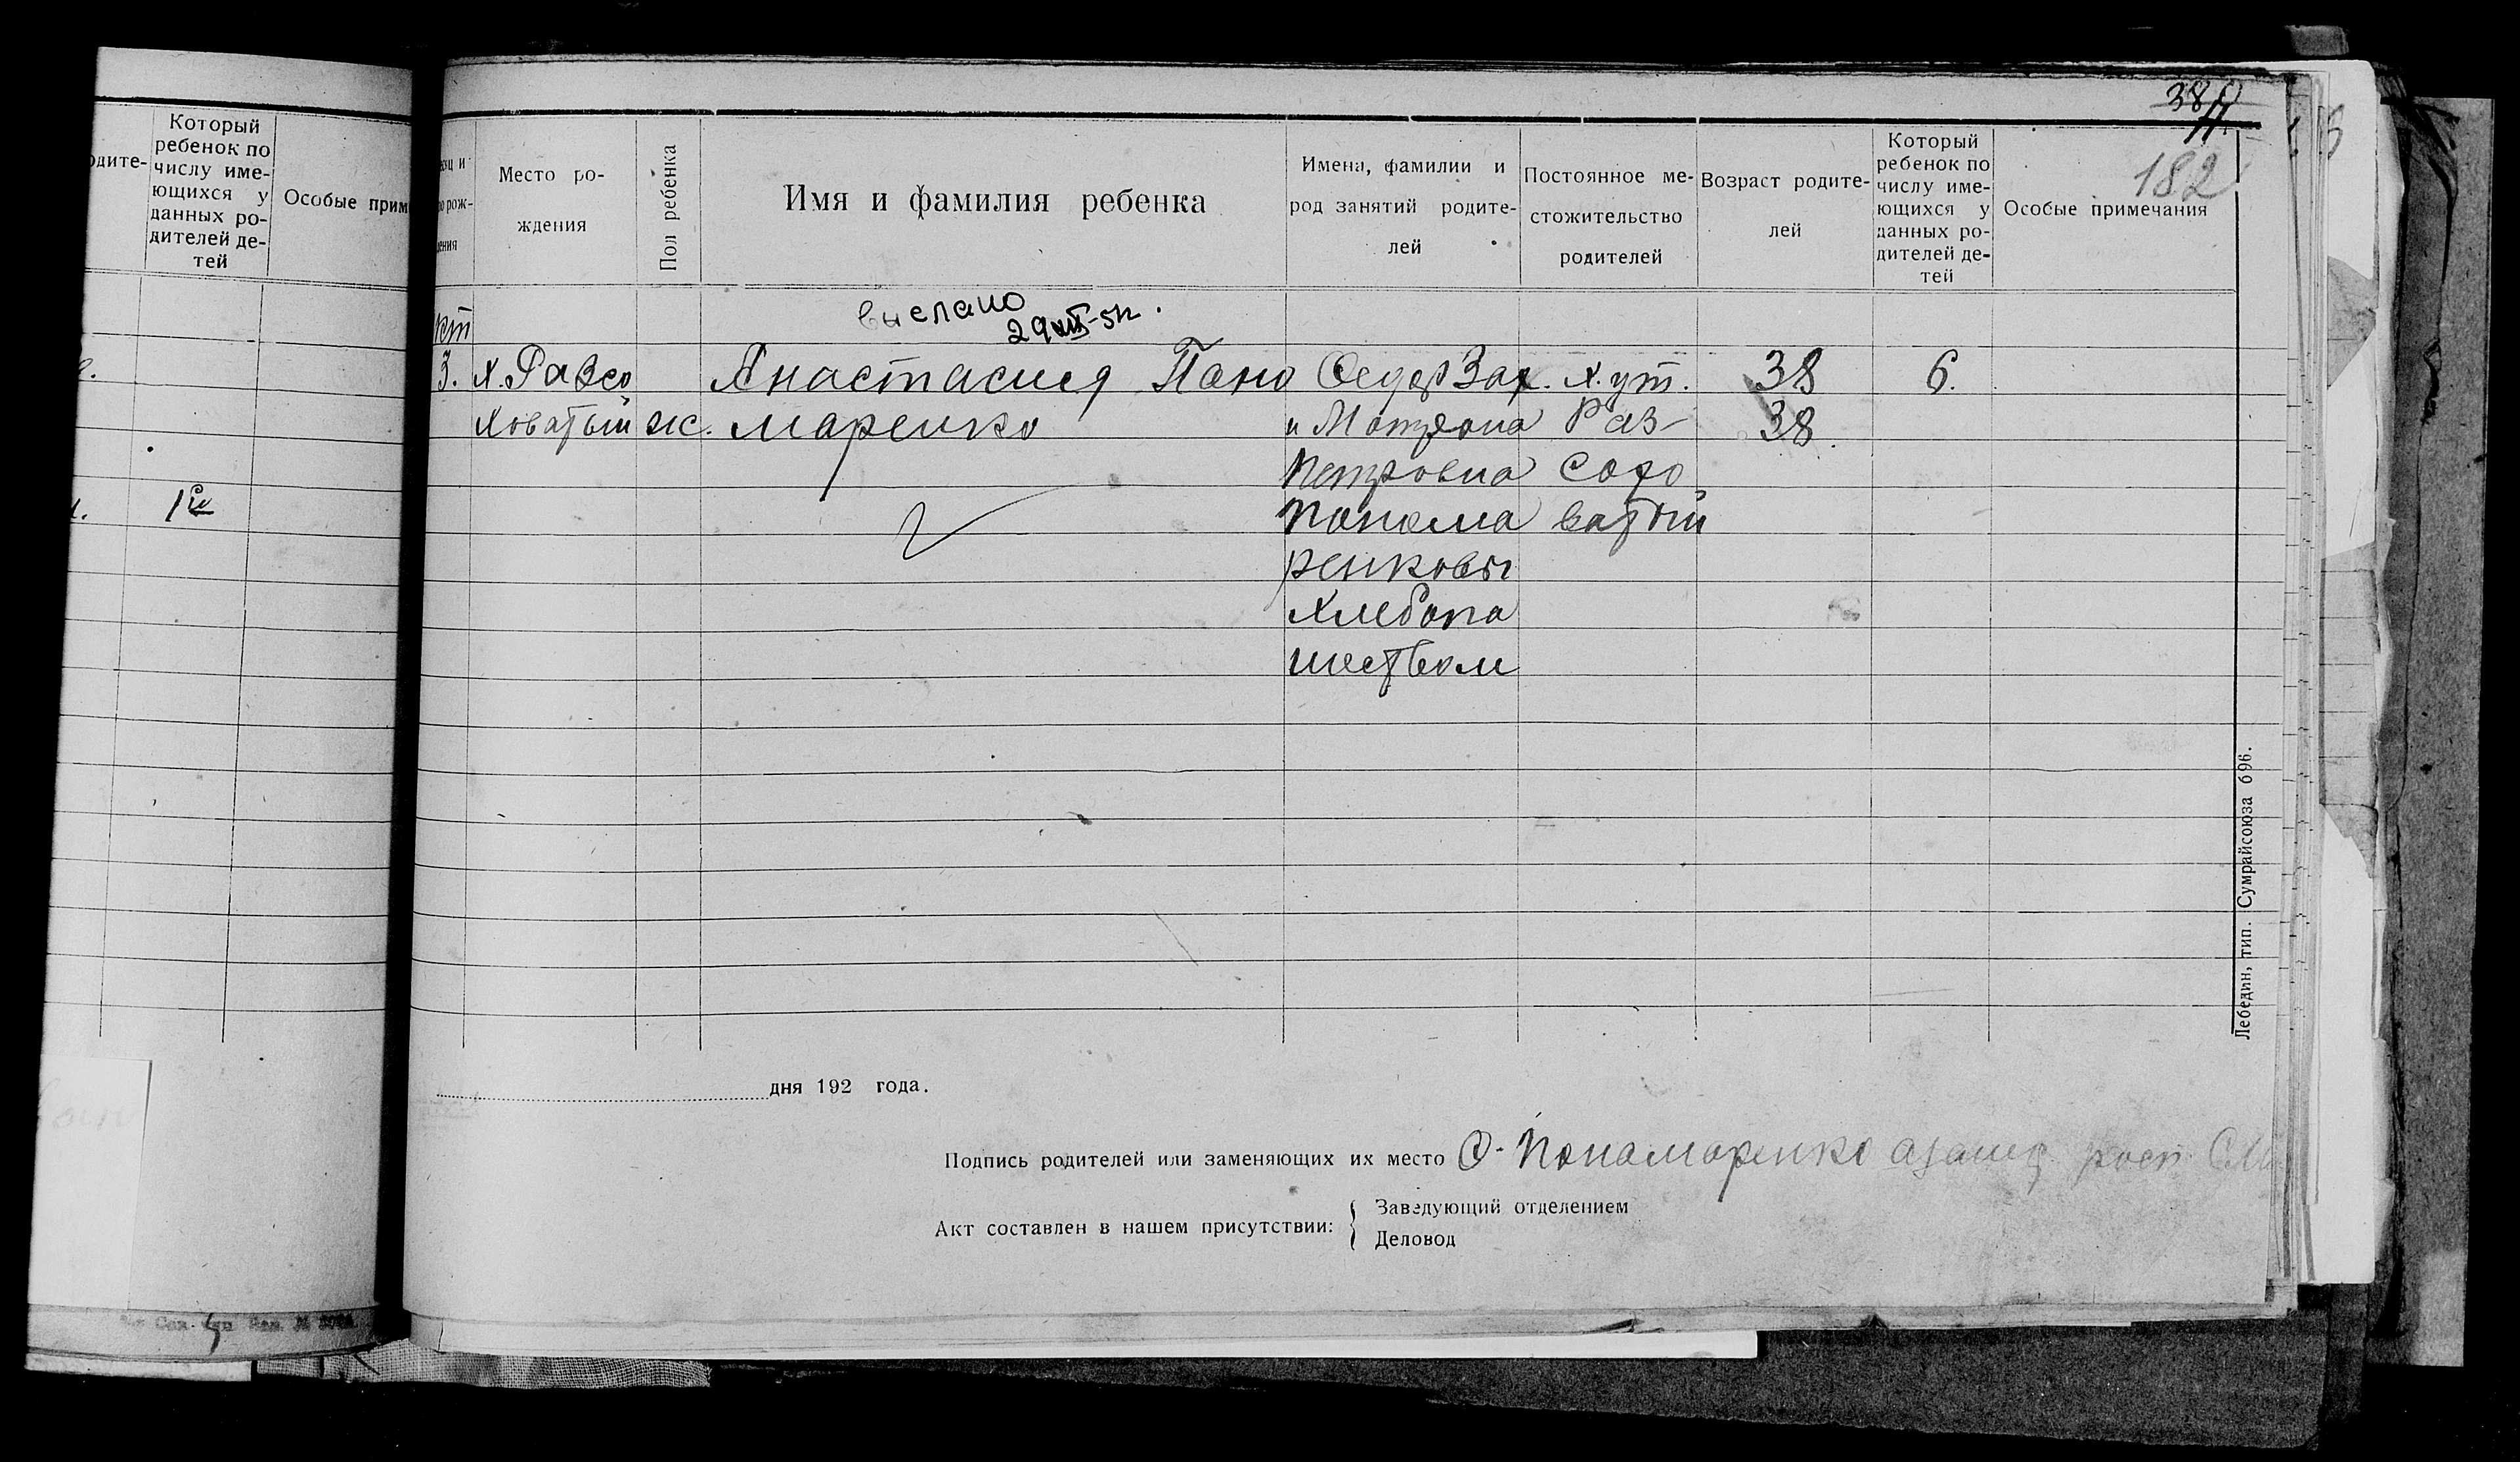 380
182
одите-
Который
ребенок по
числу име-
ющихся у
данных ро-
дителей де-
тей
Особые прим
1й
Место ро-
ждения
Пол ребенка
Имя и фамилия ребенка
Имена, фамилии и
род занятий родите-
лей
Постоянное ме-
стожительство
родителей
Возраст родите-
лей
Который
ребенок по
числу име-
ющихся у
данных ро-
дителей де-
тей
Особые примечания
выслано
29 XII-51г.
3. х. Разсо
ховатый
ж.
Анастасия Поно
маренко
Федор Зах.
и Мотрона
Петровна
Понома
ренковы
хлебопа
шеством
Хут.
Раз-
сохо
ватый
38
38.
6.
дня 192 года.
Подпись родителей или заменяющих их место Ф. Пономаренко
Акт составлен в нашем присутствии:
Заведующий отделением
Деловод
Лебедин, тип. Сумрайсоюза 696.